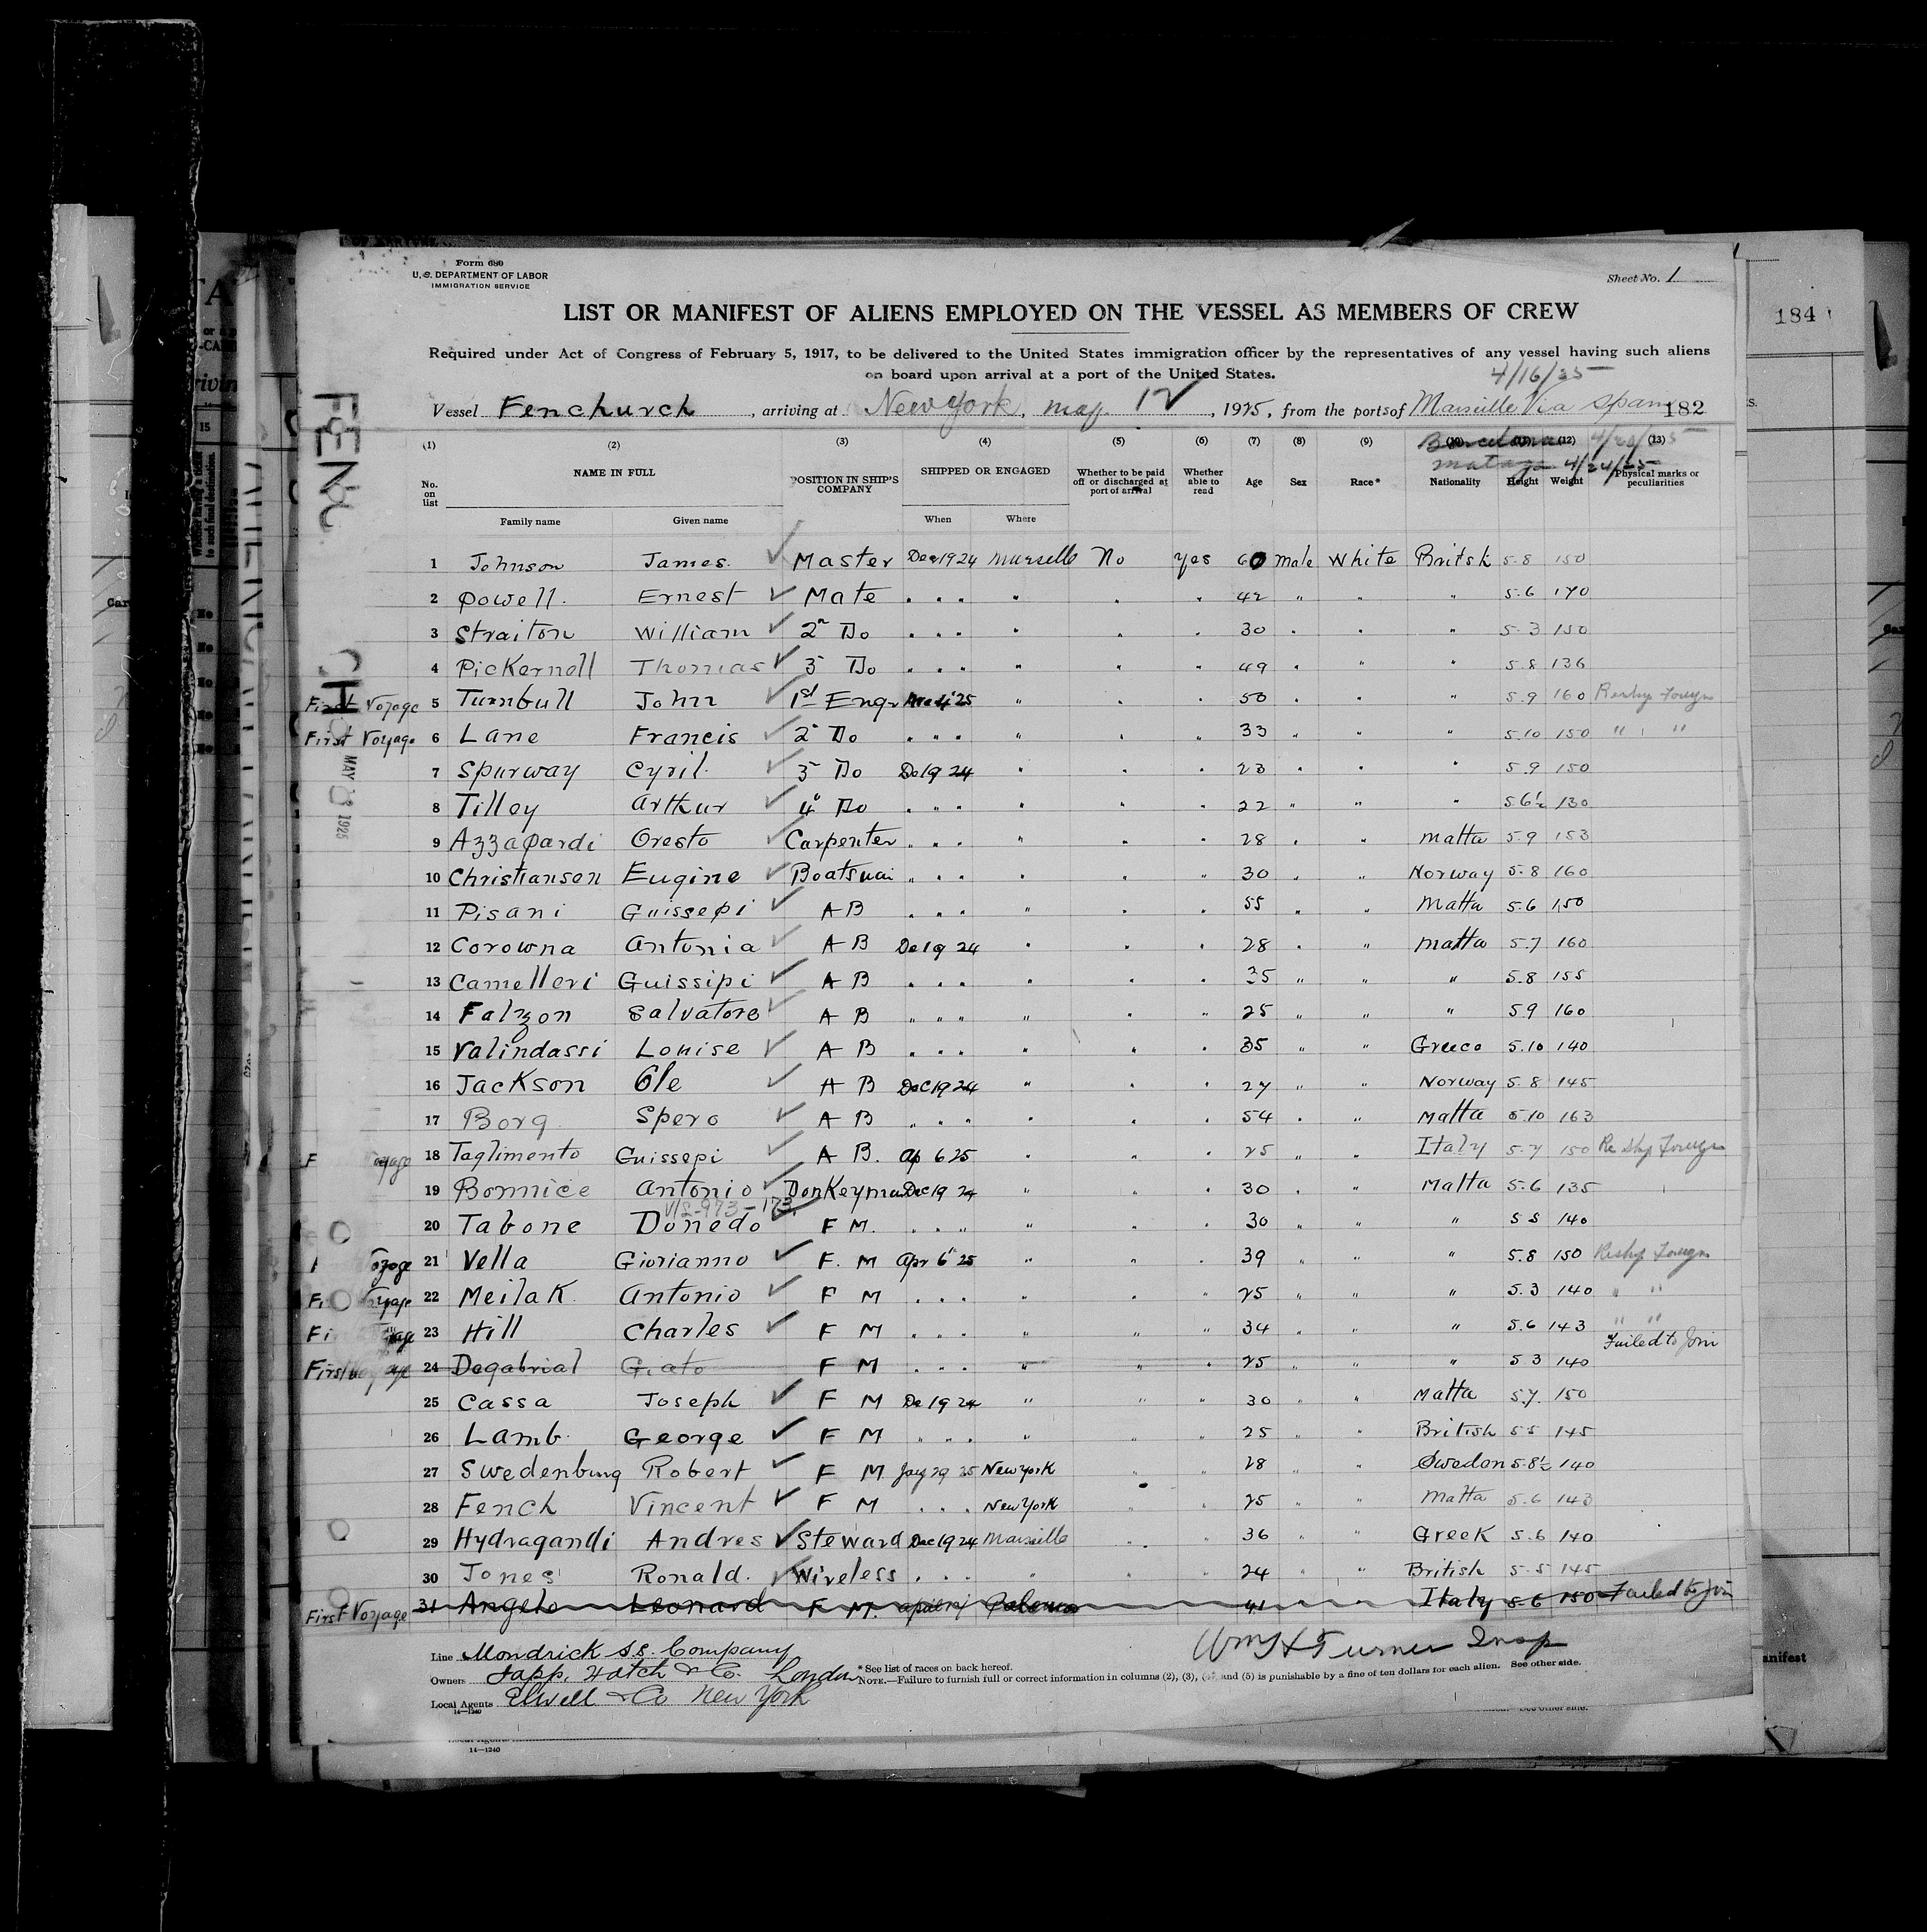 Form 680
U. S. DEPARTMENT OF LABOR
IMMIGRATION SERVICE
Sheet No. 1
184
LIST OR MANIFEST OF ALIENS EMPLOYED ON THE VESSEL AS MEMBERS OF CREW
Required under Act of Congress of February 5, 1917, to be delivered to the United States immigration officer by the representatives of any vessel having such aliens
on board upon arrival at a port of the United States.
4/16/25
Vessel Fenchurch, arriving at New York, may 12, 1925, from the ports of Marseille Via Spain 182
Barcelona 4/20/25
malaga 4/24/25
(1) (2) (3) (4) (5) (6) (7) (8) (9) (10) (11) (12) (13)
No. on list NAME IN FULL POSITION IN SHIP'S COMPANY SHIPPED OR ENGAGED Whether to be paid off or discharged at port of arrival Whether able to read Age Sex Race* Nationality Height Weight Physical marks or peculiarities
Family name Given name When Where
1 Johnson James. Master Dec 19 24 Marselle No Yes 60 male White Britsh 5-8 150
2 Powell. Ernest Mate " " " " " " 42 " " " 5.6 170
3 Straiton William 2n Do " " " " " " 30 " " " 5-3 150
4 PicKernell Thomas 3 Do " " " " " " 49 " " " 5.8 136
First Voyage 5 Turnbull John 1st Engr 25 " " " 50 " " " 5.9 160 Reship Foreign
First Voyage 6 Lane Francis 2" Do " " " " " " 33 " " " 5.10 150 " "
7 Spurway Cyril. 3 Do De 19 24 " " " 23 " " " 5.9 150
8 Tilley Arthur 4" Do " " " " " " 22 " " " 5 6½ 130
9 Azzapardi Oresto Carpenter " " " " " " 28 " " Malta 5.9 153
10 Christiansen Eugine Boatswai " " " " " " 30 " " Norway 5-8 160
11 Pisani Guissepi A B " " " " " " 55 " " Malta 5.6 150
12 Corowna Antonia A B De 19 24 " " " 28 " " Malta 5.7 160
13 Camelleri Guissipi A B " " " " " " 35 " " " 5.8 155
14 Falzon Salvatore A B " " " " " " 25 " " " 5.9 160
15 Valindassi Louise A B " " " " " " 35 " " Greece 5.10 140
16 JacKson Ole A B Dec 19 24 " " " 27 " " Norway 5.8 145
17 Borg Spero A B " " " " " " 54 " " Malta 5.10 163
18 Taglimento Guissepi A B. Ap 6 25 " " " 25 " " Italy 5.7 150 Re Ship Foreign
19 Bonnice Antonio DonKeyman Dec 19 24 " " " 30 " " Malta 5.6 135
20 Tabone Donedo F M. " " " " " " 30 " " " 5 5 140
21 Vella Giorianno F. M Apr 6" 25 " " " 39 " " " 5.8 150 Reship Foreign
22 MeilaK Antonio F M " " " " " " 25 " " " 5.3 140 " "
23 Hill Charles F M " " " " " " 34 " " " 5.6 143 " "
First Voyage 24 Degabrial Giato F M " " " " " " 25 " " " 5 3 140 Failed to Join
25 Cassa Joseph F M De 19 24 " " " 30 " " Malta 5.7. 150
26 Lamb. George F M " " " " " " 25 " " British 5 5 145
27 Swedenburg Robert F M 29 25 New York " " 28 " " Sweden 5-8½ 140
28 Fench Vincent F M " " " New York " " 25 " " Malta 5.6 143
29 Hydragandi Andres Steward Dec 19 24 Marseille " " 36 " " Greek 5.6 140
30 Jones Ronald. Wireless " " " " " " 24 " " British 5-5 145
First Voyage 31 Angelo Leonard F M. April Palermo 41 " " Italy 5-6 150 Failed to Join
FENCHURCH
MAY 1925
Wm H Turner Insp
Line Mondrick SS. Company
Owners Tapp, Hatch & Co. London
Local Agents Elwell & Co New York
14—1240
*See list of races on back hereof.
NOTE.—Failure to furnish full or correct information in columns (2), (3), (4), and (5) is punishable by a fine of ten dollars for each alien. See other side.
See other side.
14—1240